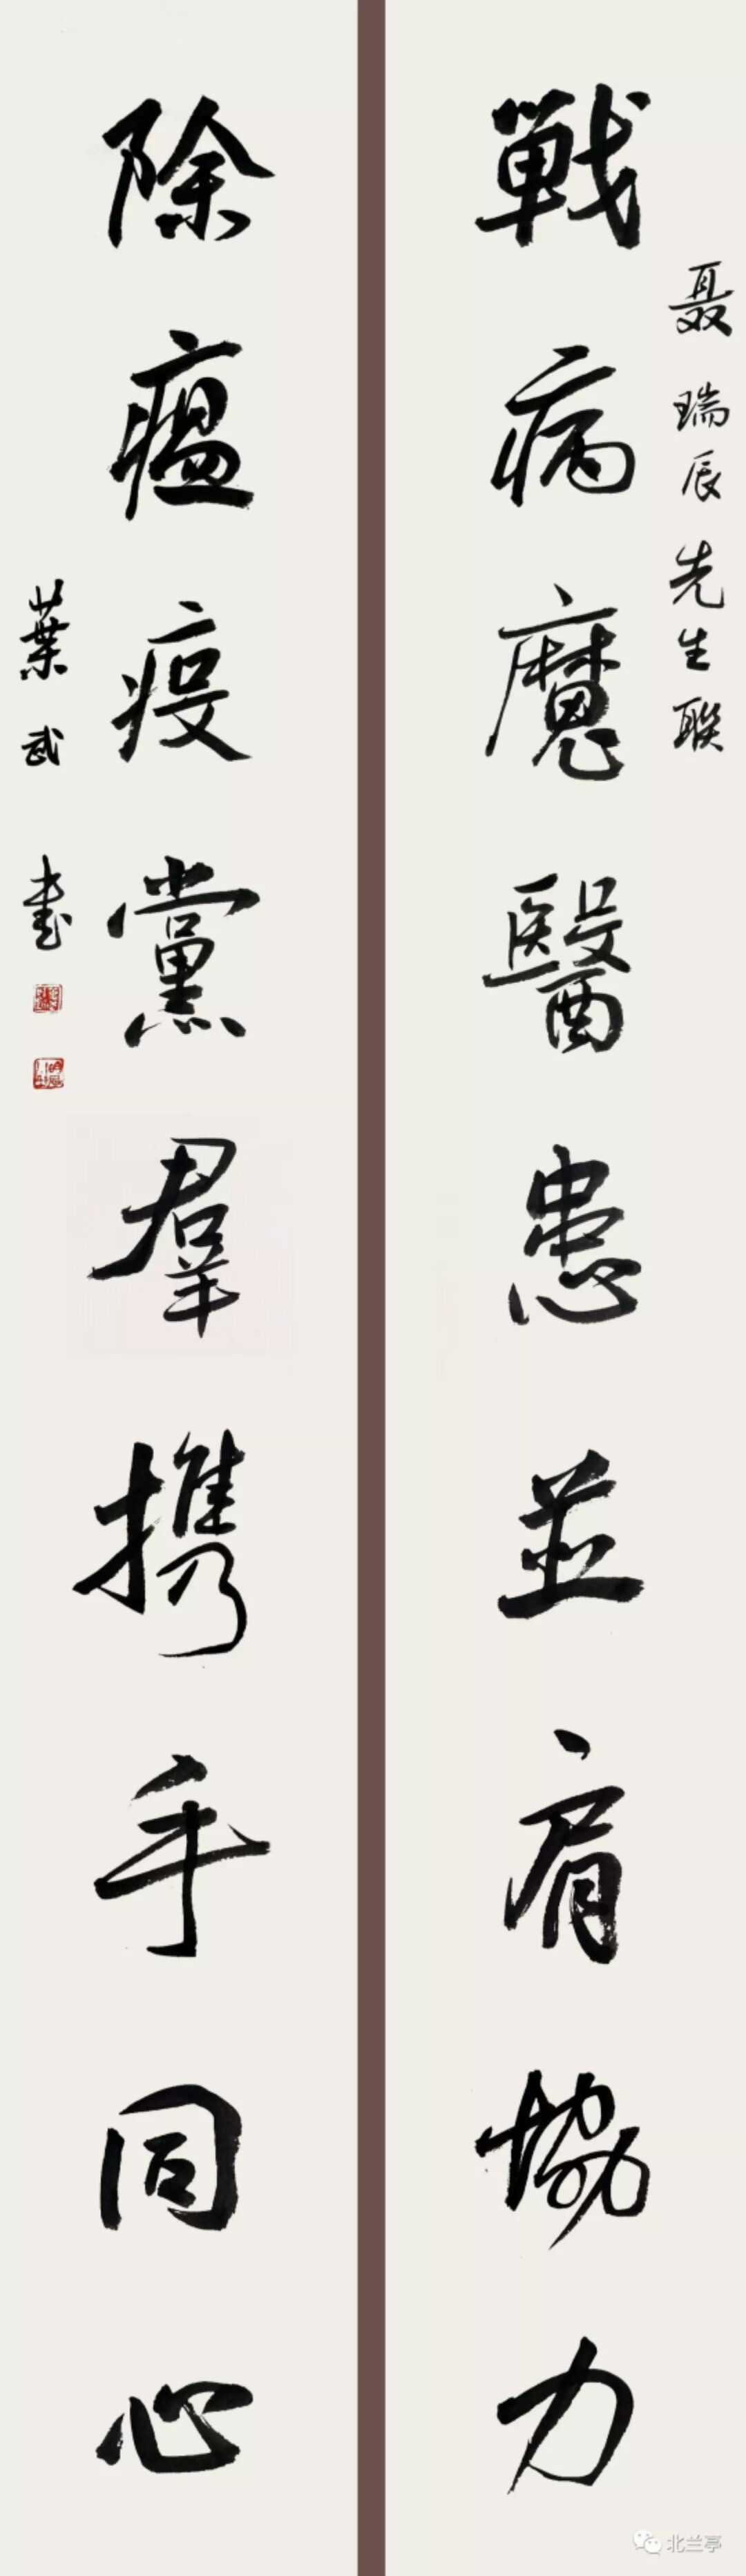 聂瑞辰先生联
戰病魔醫患並肩協力
除瘟疫黨群携手同心
葉武書
北兰亭